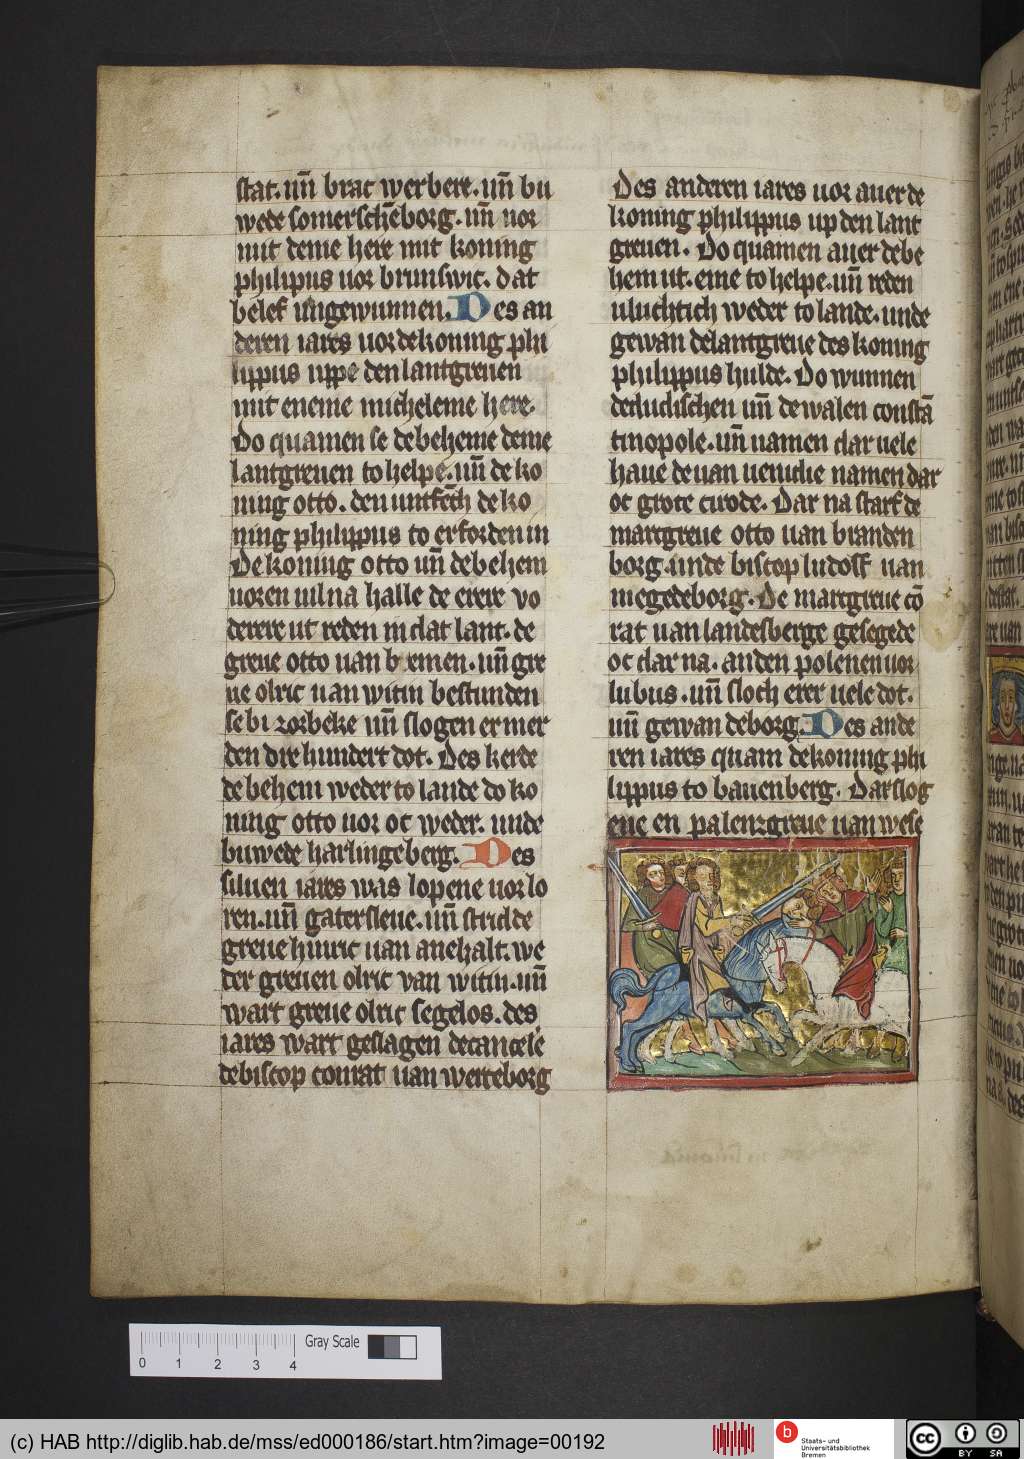 stat. uñ brac werbere. uñ bu
wede somerschēborg. uñ uor
mit deme here mit koning
philipus uor brunswic. dat
belef ungewunnen. Des an
deren iares uor de koning phi
lippus uppe den lantgreuen
mit eneme micheleme here.
Do quamen se de beheme deme
lantgreuen to helpe. uñ de ko
ning otto. den untfēch de ko
ning philippus to erforden in
De koning otto uñ de behem
uoren uil na halle de erere vo
derere ut reden in dat lant. de
greue otto uan bremen. uñ gre
ue olric uan witin bestunden
se bi zorbeke uñ slogen er mer
den dre hundert dot. Des kerde
de behem weder to lande do ko
ning otto uor oc weder. unde
buwede harlingeberg. Des
siluen iares was lopene uor lo
ren. uñ gatersleue. uñ strid de
greue hinric uan anehalt. we
der greuen olric van witin. uñ
wart greue olric segelos. des
iares wart geslagen de cancele
de biscop conrat uan werceborg
Des anderen iares uor auer de
koning philippus up den lant
greuen. Do quamen auer de be
hem ut. eme to helpe. uñ reden
uluchtich weder to lande. unde
gewan de lantgreue des koning
philippus hulde. Do wunnen
der ludischen uñ de walen constā
tinopole. uñ namen dar uele
haue de uan uenidie namen dar
oc grote cirode. Dar na starf de
marcgreue otto uan branden
borg. unde biscop ludolf uan
megedeborg. De marcgreue cō
rat uan landesberge gesegede
oc dar na. an den polenen uor
lubus. uñ sloch erer uele dot.
uñ gewan de borg. Des ande
ren iares quam de koning phi
lippus to bauenberg. Dar slog
ene en palenzgreue uan wese
0 1 2 3 4
Gray Scale
(c) HAB http://diglib.hab.de/mss/ed000186/start.htm?image=00192
b
Staats- und
Universitätsbibliothek
Bremen
cc
BY SA